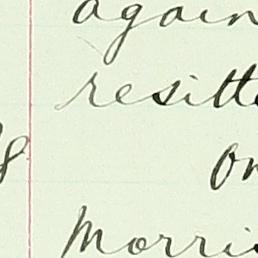 again
resitt
8
on
Morri